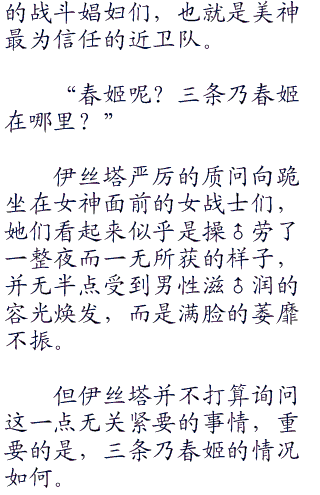 的战斗娼妇们，也就是美神
最为信任的近卫队。
“春姬呢？三条乃春姬
在哪里？”
伊丝塔严厉的质问向跪
坐在女神面前的女战士们，
她们看起来似乎是操♁劳了
一整夜而一无所获的样子，
并无半点受到男性滋♁润的
容光焕发，而是满脸的萎靡
不振。
但伊丝塔并不打算询问
这一点无关紧要的事情，重
要的是，三条乃春姬的情况
如何。